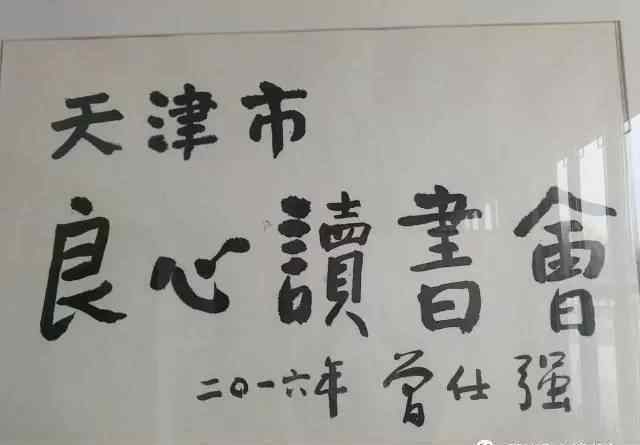 天津市
良心讀書會
二〇一六年 曾仕强